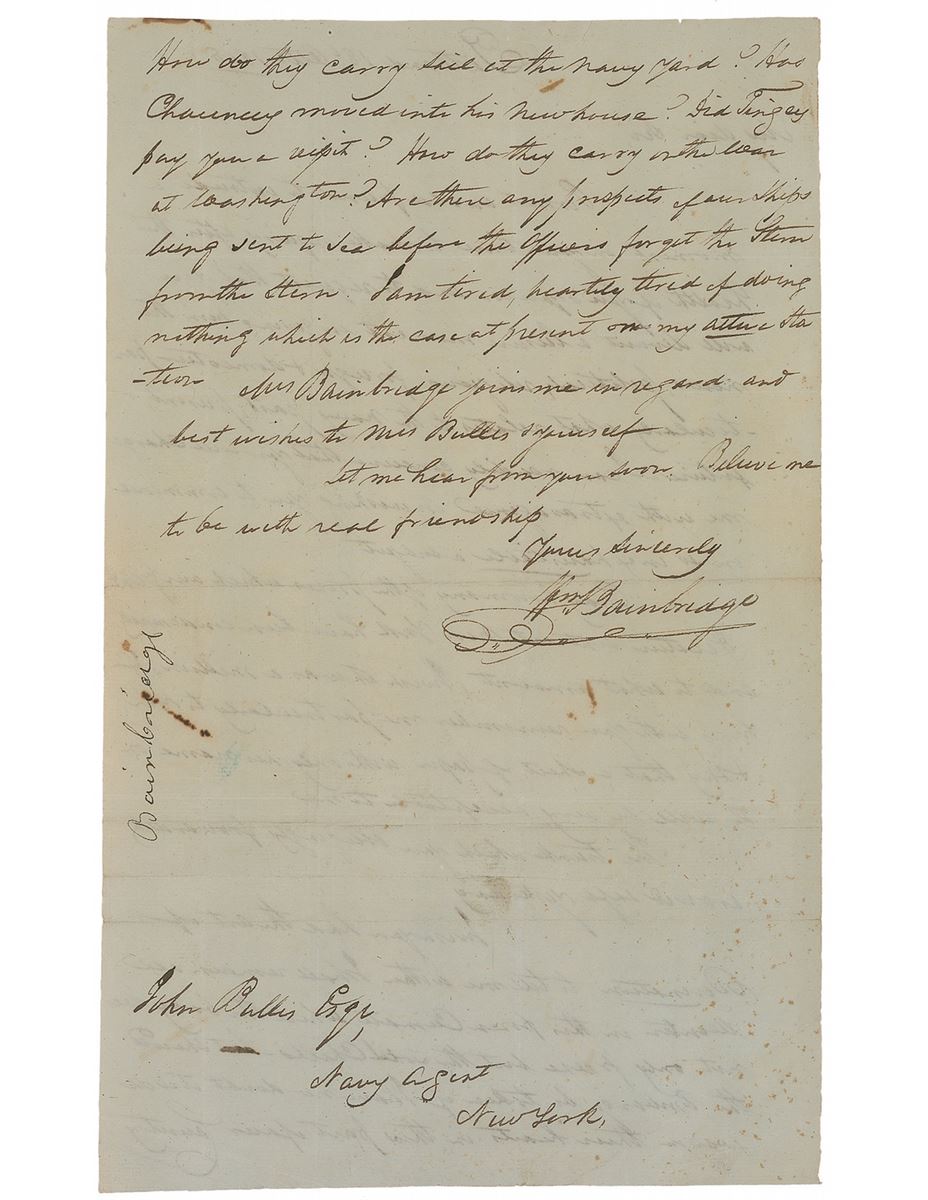 How do they carry sail at the Navy Yard? Has
Chauncey moved into his New house? Did Tingey
pay you a visit? How do they carry on the War
at Washington? Are there any prospects of our Ships
being sent to Sea before the Officers forget the Stem
from the Stern. I am tired, heartily tired of doing
nothing which is the case at present on my active Sta
-tion Mrs Bainbridge joins me in regard and
best wishes to Mrs Bullus & yourself
Let me hear from you soon. Believe me
to be with real friendship
Yours Sincerely
Wm Bainbridge
Bainbridge
John Bullus Esqr,
Navy Agent
New York,